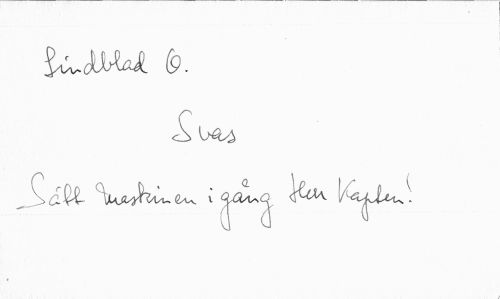 Lindblad O.
Svas
Sätt maskinen i gång Herr Kapten!